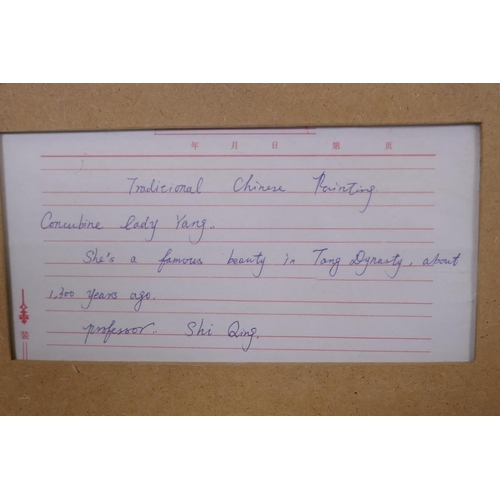 年 月 日 第 页
Traditional Chinese Painting
Concubine lady Yang.
She's a famous beauty in Tang Dynasty, about
1,300 years ago.
professor. Shi Qing.
装